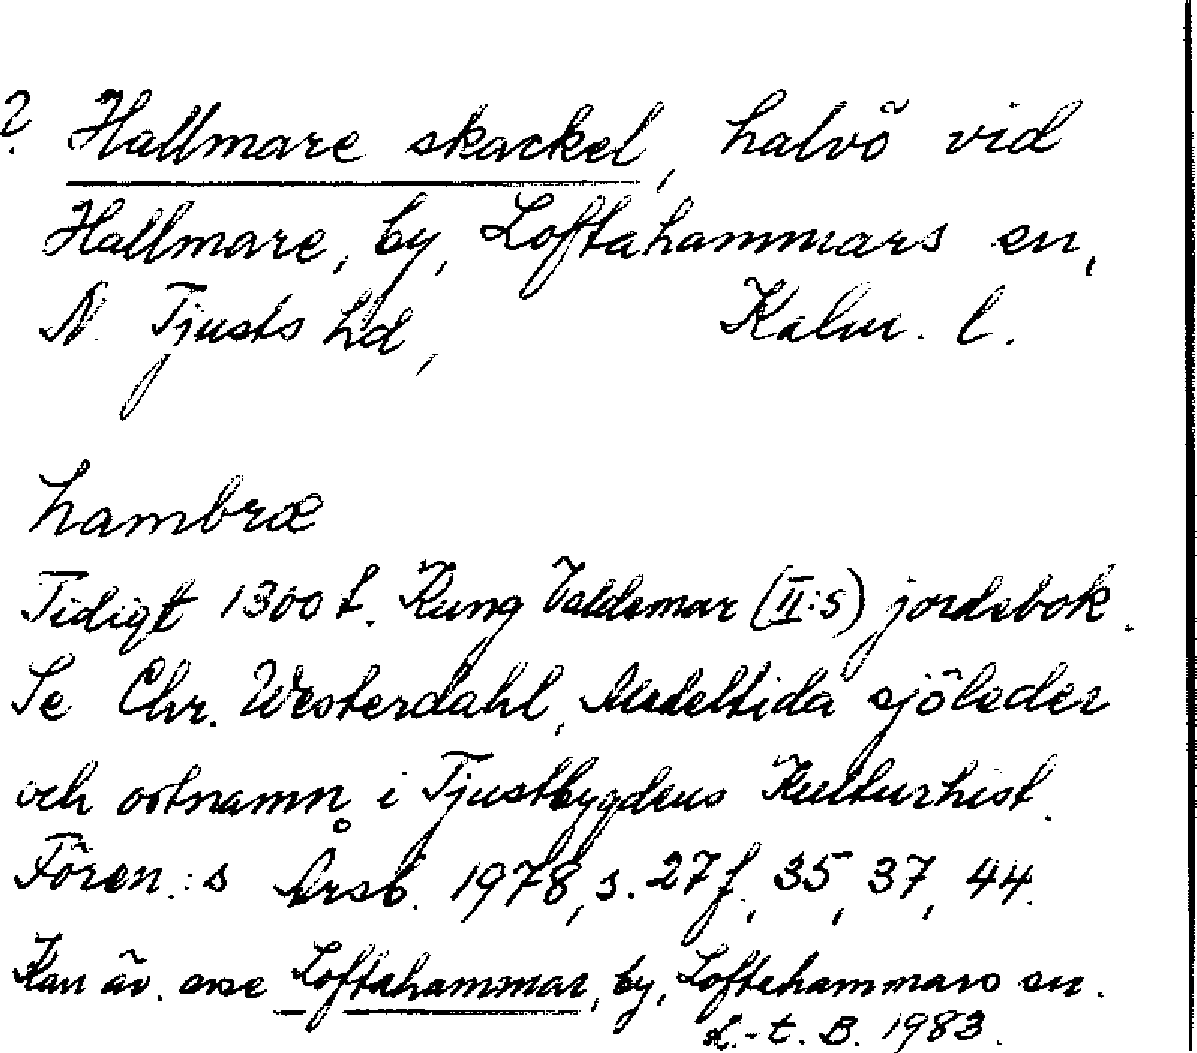 ? Hallmare skackel, halvö vid
Hallmare, by, Loftahammars sn,
N. Tjusts hd, Kalm. l.
hambræ
Tidigt 1300 t. Kung Valdemar (II:s) jordebok.
Se Chr. Westerdahl, Medeltida sjöleder
och ortnamn i Tjustbygdens Kulturhist.
Fören.:s Årsb. 1978, s. 27 f., 35, 37, 44.
Kan äv. avse Loftahammar, by, Loftahammars sn.
L.-t. B. 1983.